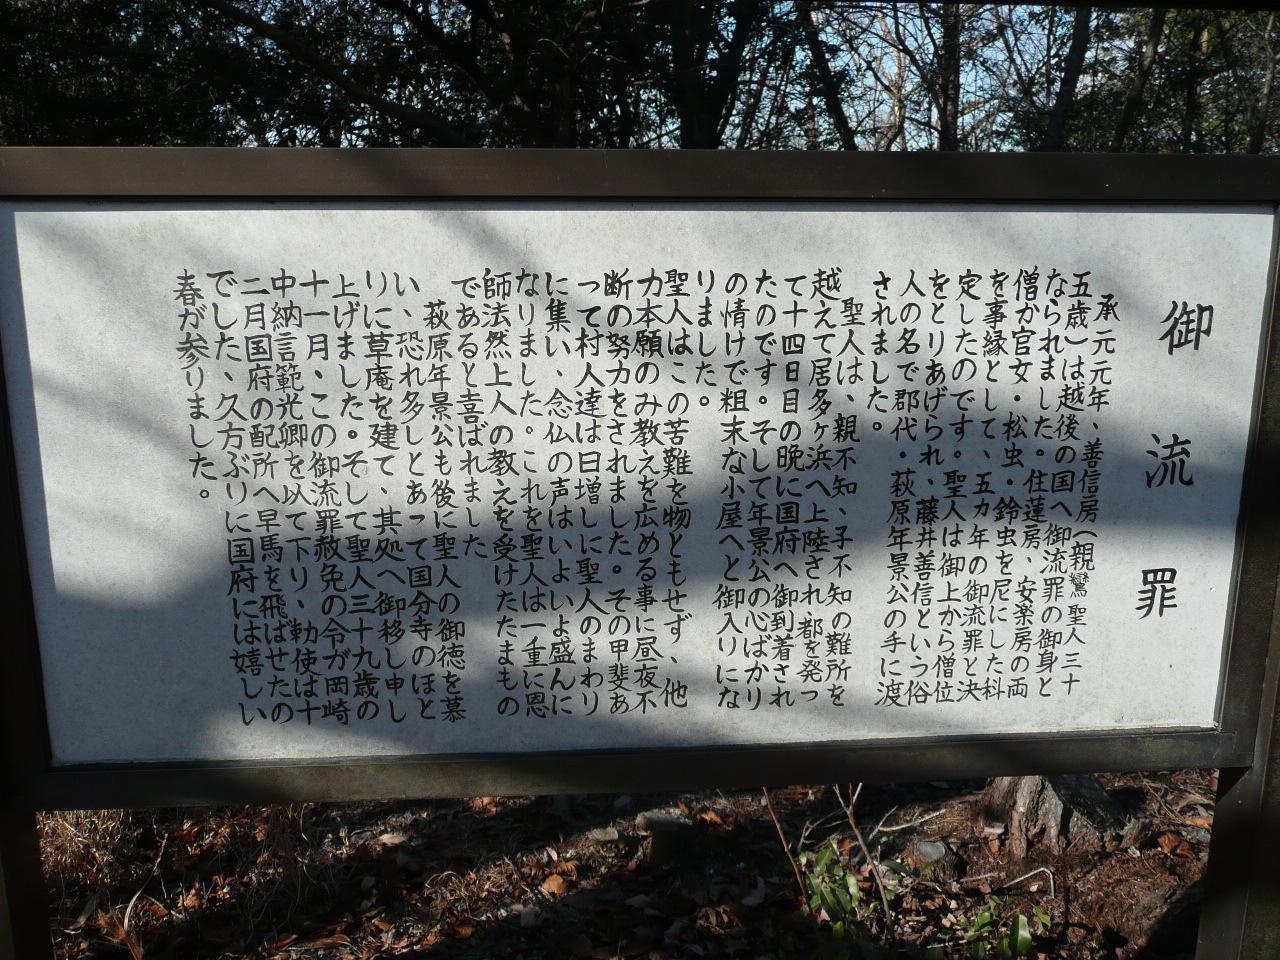 御流罪
承元元年、善信房(親鸞聖人三十
五歳)は越後の国へ御流罪の御身と
なられました。住蓮房、安楽房の両
僧が官女・松虫・鈴虫を尼にした科
を事縁として、五カ年の御流罪と決
定したのです。聖人は御上から僧位
をとりあげられ、藤井善信という俗
人の名で郡代・萩原年景公の手に渡
されました。
聖人は、親不知、子不知の難所を
越えて居多ヶ浜へ上陸され都を発っ
て十四日目の晩に国府へ御到着され
たのです。そして年景公の心ばかり
の情けで粗末な小屋へと御入りにな
りました。
聖人はこの苦難を物ともせず、他
力本願のみ教えを広める事に昼夜不
断の努力をされました。その甲斐あ
って村人達は日増しに聖人のまわり
に集い、念仏の声はいよいよ盛んに
なりました。これを聖人は一重に恩
師法然上人の教えを受けたたまもの
であると喜ばれました
萩原年景公も後に聖人の御徳を慕
い、恐れ多しとあって国分寺のほと
りに草庵を建て、其処へ御移し申し
上げました。そして聖人三十九歳の
十一月、この御流罪赦免の令が岡崎
中納言範光卿を以て下り、勅使は十
二月国府の配所へ早馬を飛ばせたの
でした、久方ぶりに国府には嬉しい
春が参りました。